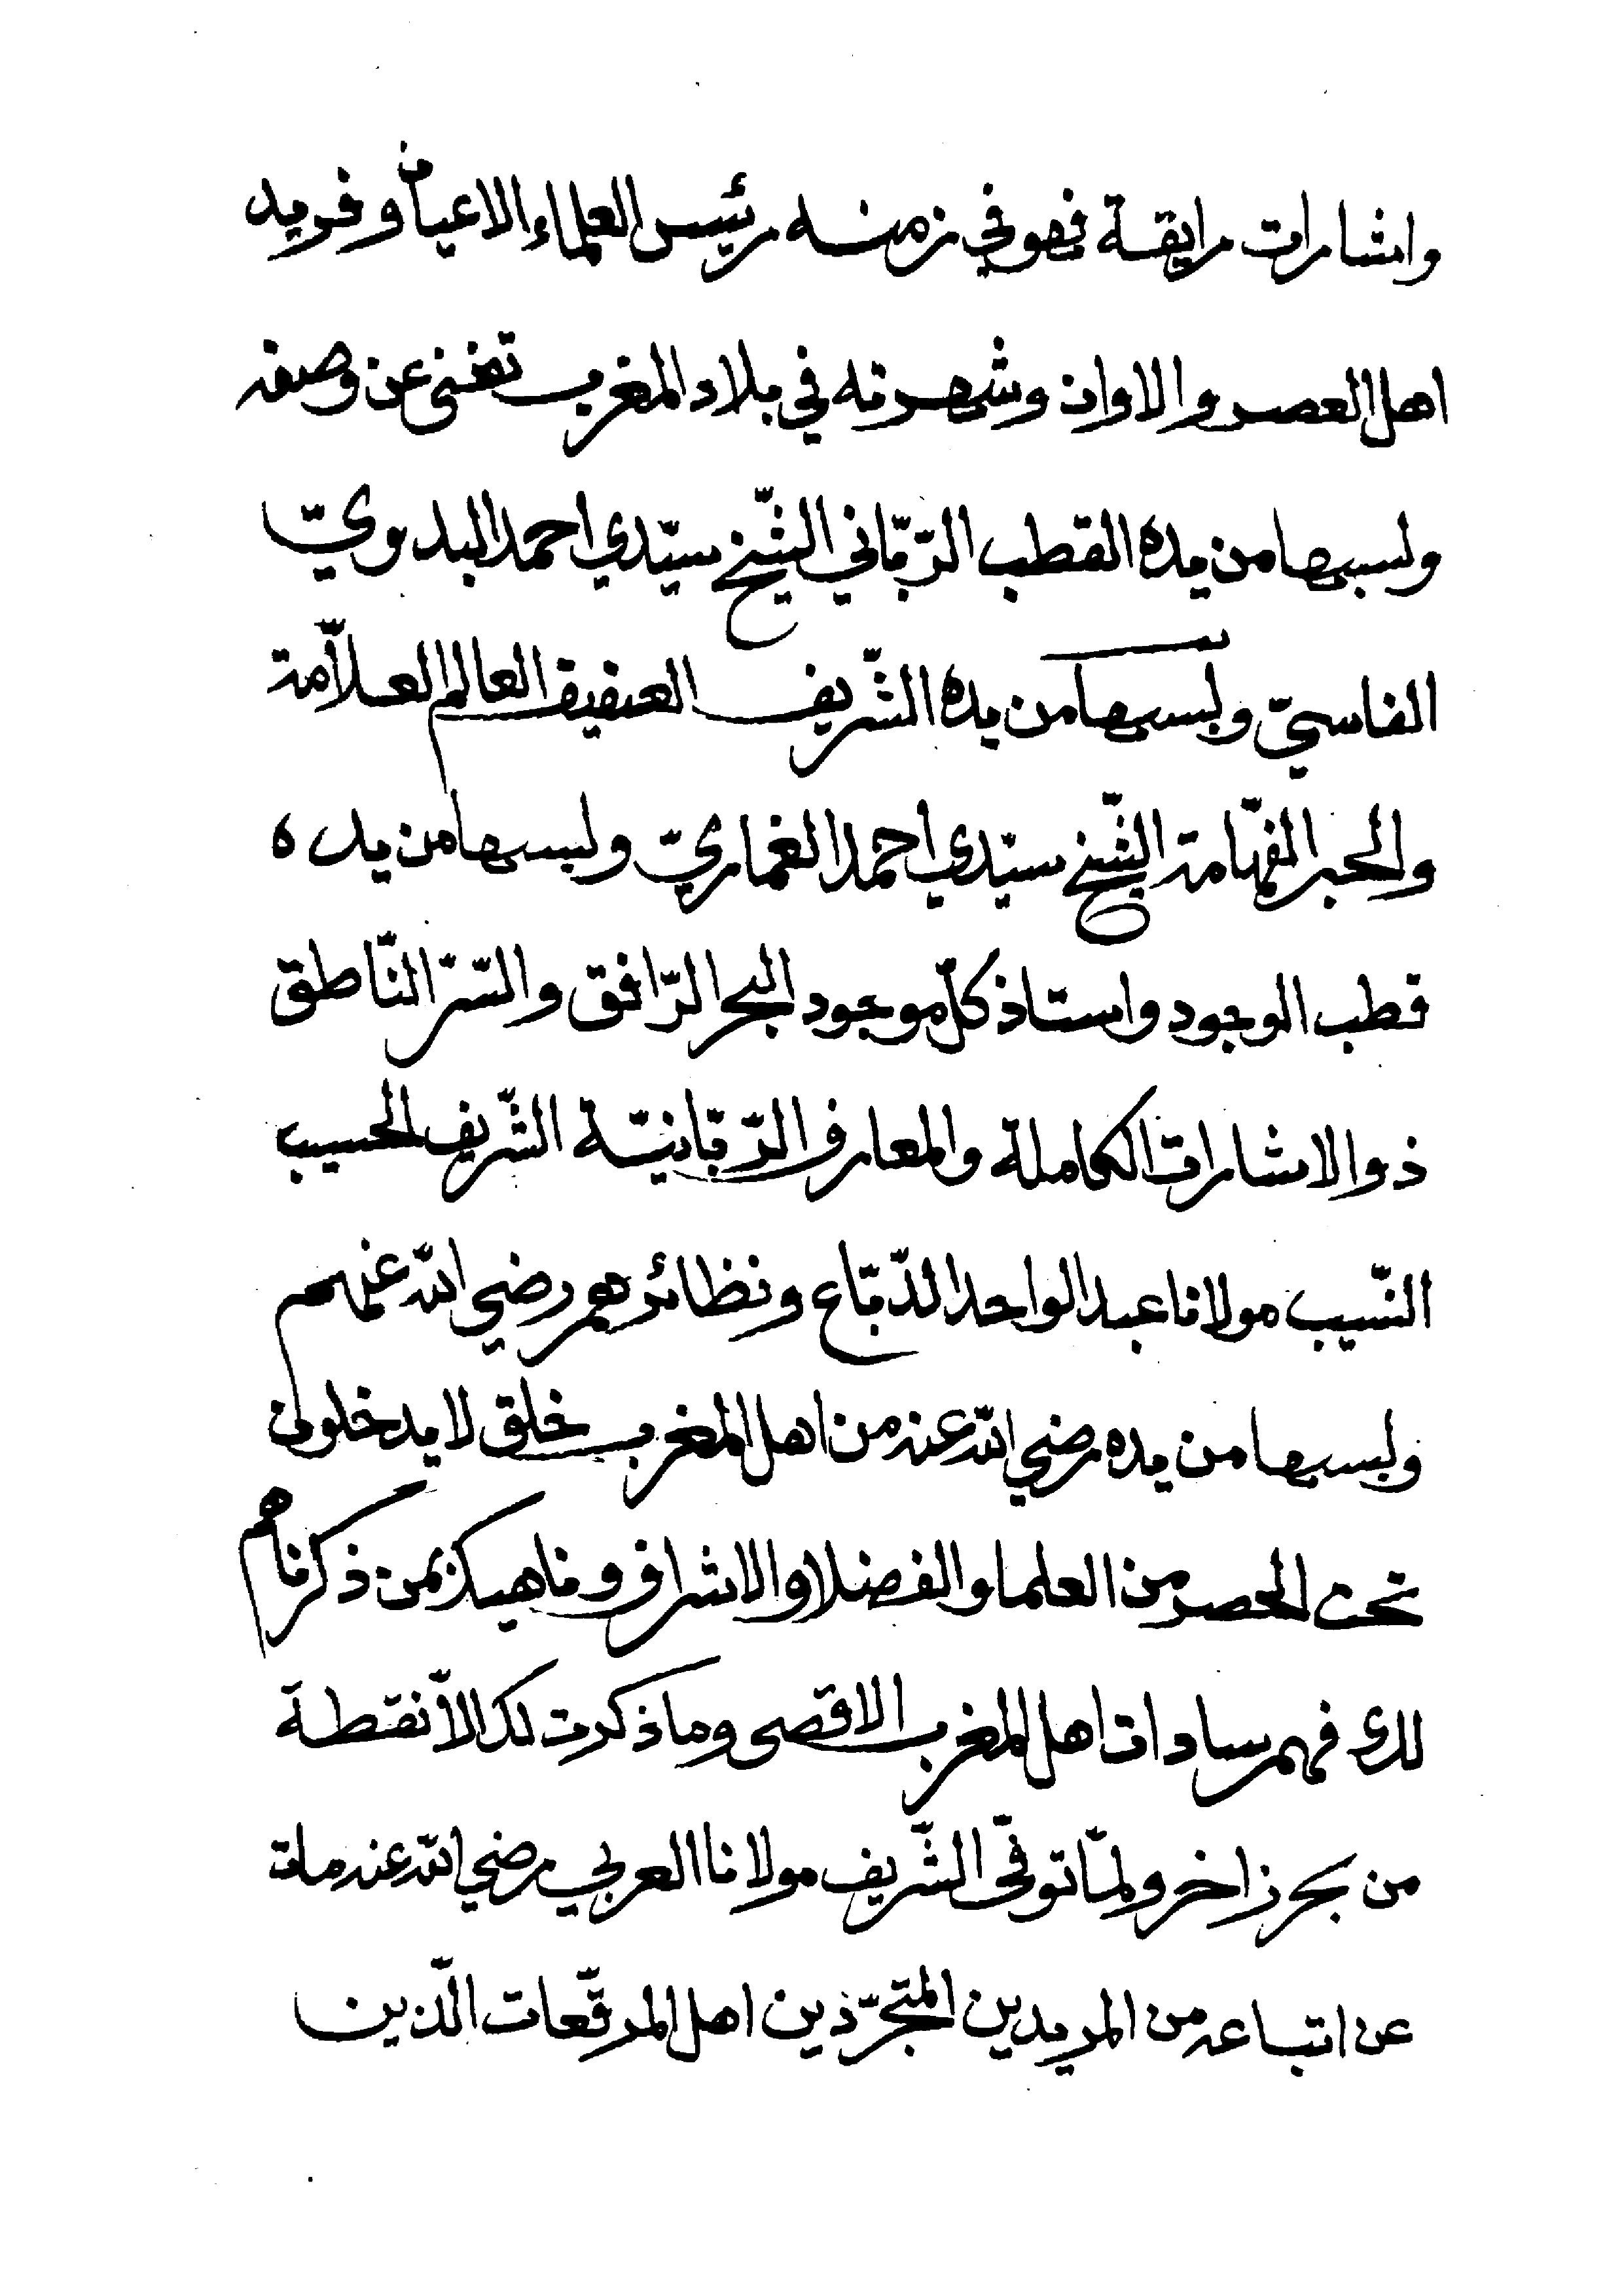 واشارات رايقة فهو في زمنه رئيس العلماء الاعيان وفريد
اهل العصر والاوان وشهرته في بلاد المغرب تغني عن وصفه
ولبسها من يده القطب الرّبّاني الشّيخ سيّدي احمد البدويّ
الفاسيّ ولبسها من يده الشّريف العفيف العالم العلاّمة
والحبر الفهّامة الشّيخ سيّدي احمد الغماريّ ولبسها من يده
قطب الوجود واستاذ كلّ موجود البحر الرّافق والسّرّ النّاطق
ذو الاشارات الكاملة والمعارف الرّبّانيّة الشّريف الحسيب
النّسيب مولانا عبد الواحد الدّبّاغ ونظائرهم رضي الله عنهم
ولبسها من يده رضي الله عنه من اهل المغرب خلق لا يدخلون
تحت الحصر من العلما والفضلا والاشراف وناهيك بمن ذكرناهم
لك فهم سادات اهل المغرب الاقصى وما ذكرت لك الاّ نقطة
من بحر زاخر ولمّا توفّى الشّريف مولانا العربي رضي الله عنه مات
عن اتباعه من المريدين المتجرّدين اهل المرقّعات الّذين